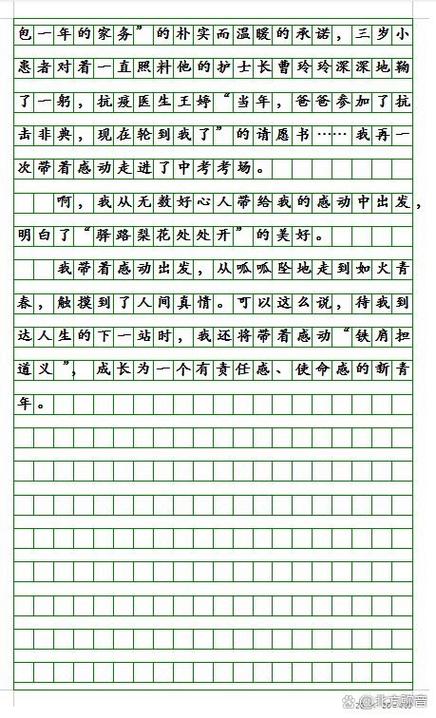 包一年的家务”的朴实而温暖的承诺，三岁小
患者对着一直照料他的护士长曹玲玲深深地鞠
了一躬，抗疫医生王婷“当年，爸爸参加了抗
击非典，现在轮到我了”的请愿书……我再一
次带着感动走进了中考考场。
啊，我从无数好心人带给我的感动中出发，
明白了“驿路梨花处处开”的美好。
我带着感动出发，从呱呱坠地走到如火青
春，触摸到了人间真情。可以这么说，待我到
达人生的下一站时，我还将带着感动“铁肩担
道义”，成长为一个有责任感、使命感的新青
年。